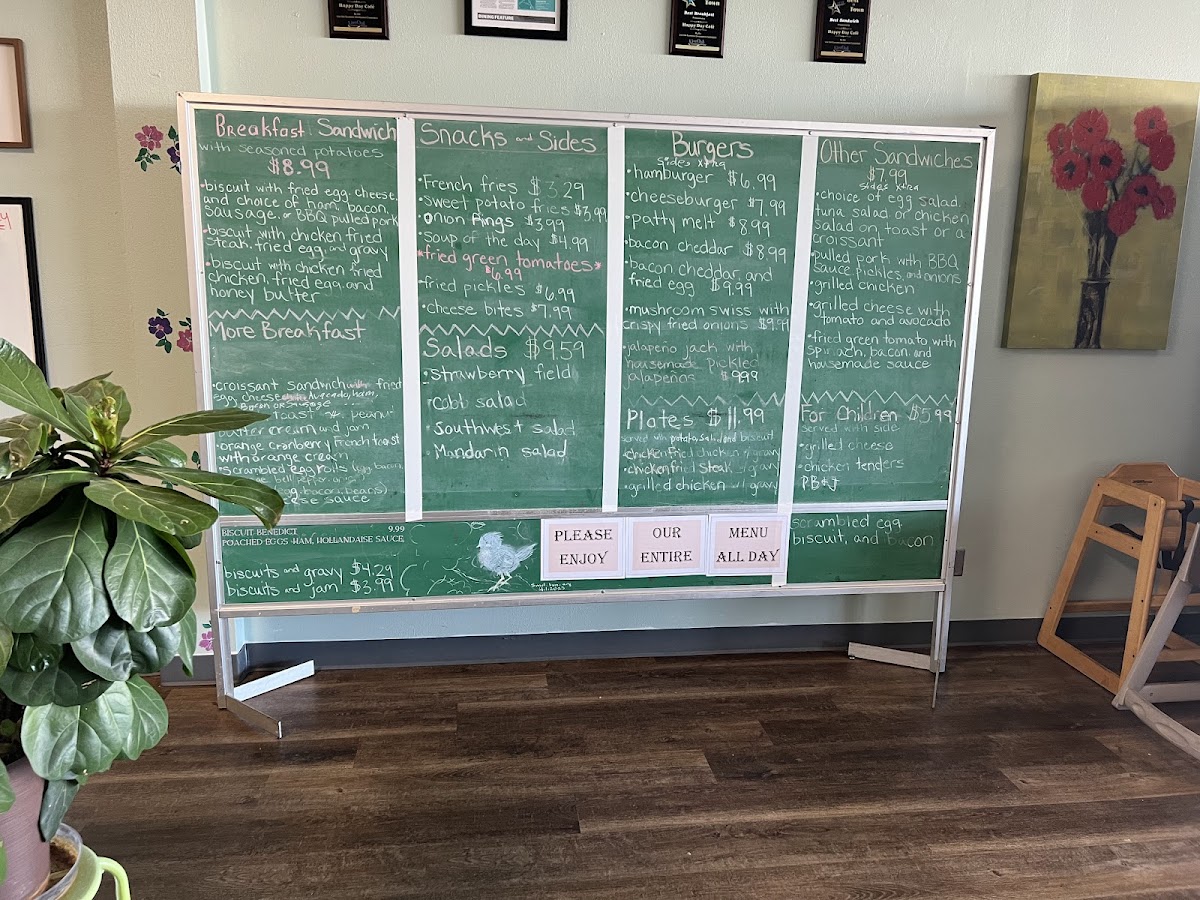 Happy Day Café
DINING FEATURE
Best Breakfast
Happy Day Café
Best Sandwich
Happy Day Café
Breakfast Sandwich
with seasoned potatoes
$8.99
•biscuit with fried egg, cheese,
and choice of ham, bacon,
sausage, or BBQ pulled pork
•biscuit with chicken fried
steak, fried egg, and gravy
•biscuit with chicken fried
chicken, fried egg, and
honey butter
More Breakfast
•croissant sandwich with fried
egg cheese avocado, ham,
bacon or sausage
toast w/ peanut
butter cream and jam
•orange cranberry French toast
with orange cream
•scrambled egg rolls (egg, bacon,
bell pepper,
(egg, bacon, beans)
cheese sauce
BISCUIT BENEDICT 9.99
POACHED EGGS, HAM, HOLLANDAISE SAUCE
biscuits and gravy $4.29
biscuits and jam $3.99
Snacks and Sides
•French fries $3.29
•sweet potato fries $3.99
•onion rings $3.99
•soup of the day $4.99
*fried green tomatoes*
$6.99
•fried pickles $6.99
•cheese bites $7.99
Salads $9.59
•strawberry field
•cobb salad
•southwest salad
•Mandarin salad
Burgers
sides xtra
•hamburger $6.99
•cheeseburger $7.99
•patty melt $8.99
•bacon cheddar $8.99
•bacon cheddar and
fried egg $9.99
•mushroom swiss with
crispy fried onions $9.99
•jalapeño jack with
housemade pickled
jalapeños $9.99
Plates $11.99
served with potato, salad, and biscuit
•chicken fried chicken w/ gravy
•chicken fried steak w/ gravy
•grilled chicken w/ gravy
Other Sandwiches
$7.99
sides xtra
•choice of egg salad,
tuna salad or chicken
salad on toast or a
croissant
•pulled pork with BBQ
sauce, pickles, and onions
•grilled chicken
•grilled cheese with
tomato and avocado
•fried green tomato with
spinach, bacon, and
housemade sauce
For Children $5.99
served with side
•grilled cheese
•chicken tenders
•PB&J
scrambled egg
biscuit, and bacon
PLEASE
ENJOY
OUR
ENTIRE
MENU
ALL DAY